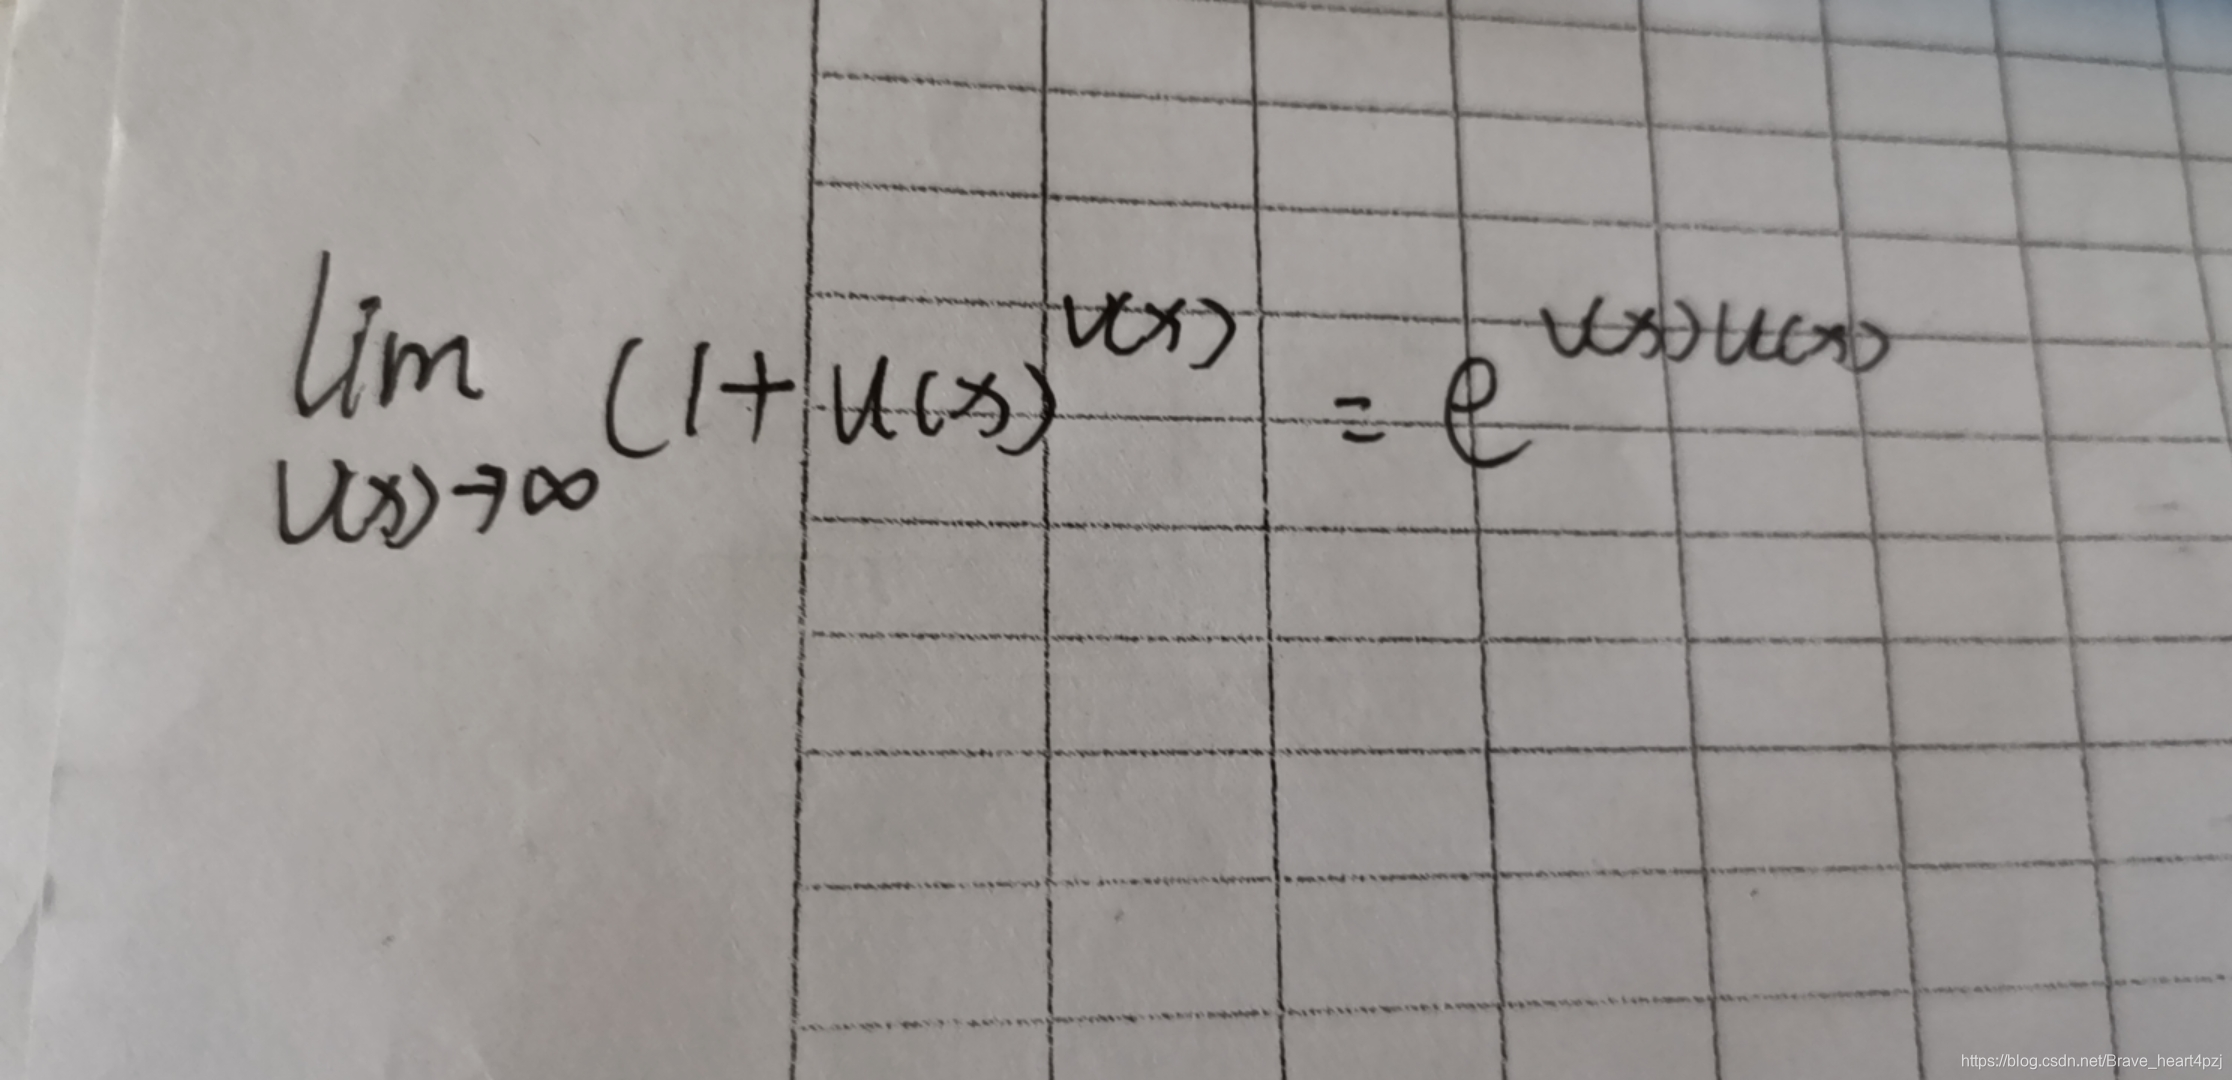 lim (1+u(x))^v(x) = e^v(x)u(x)
v(x)→∞
https://blog.csdn.net/Brave_heart4pzj